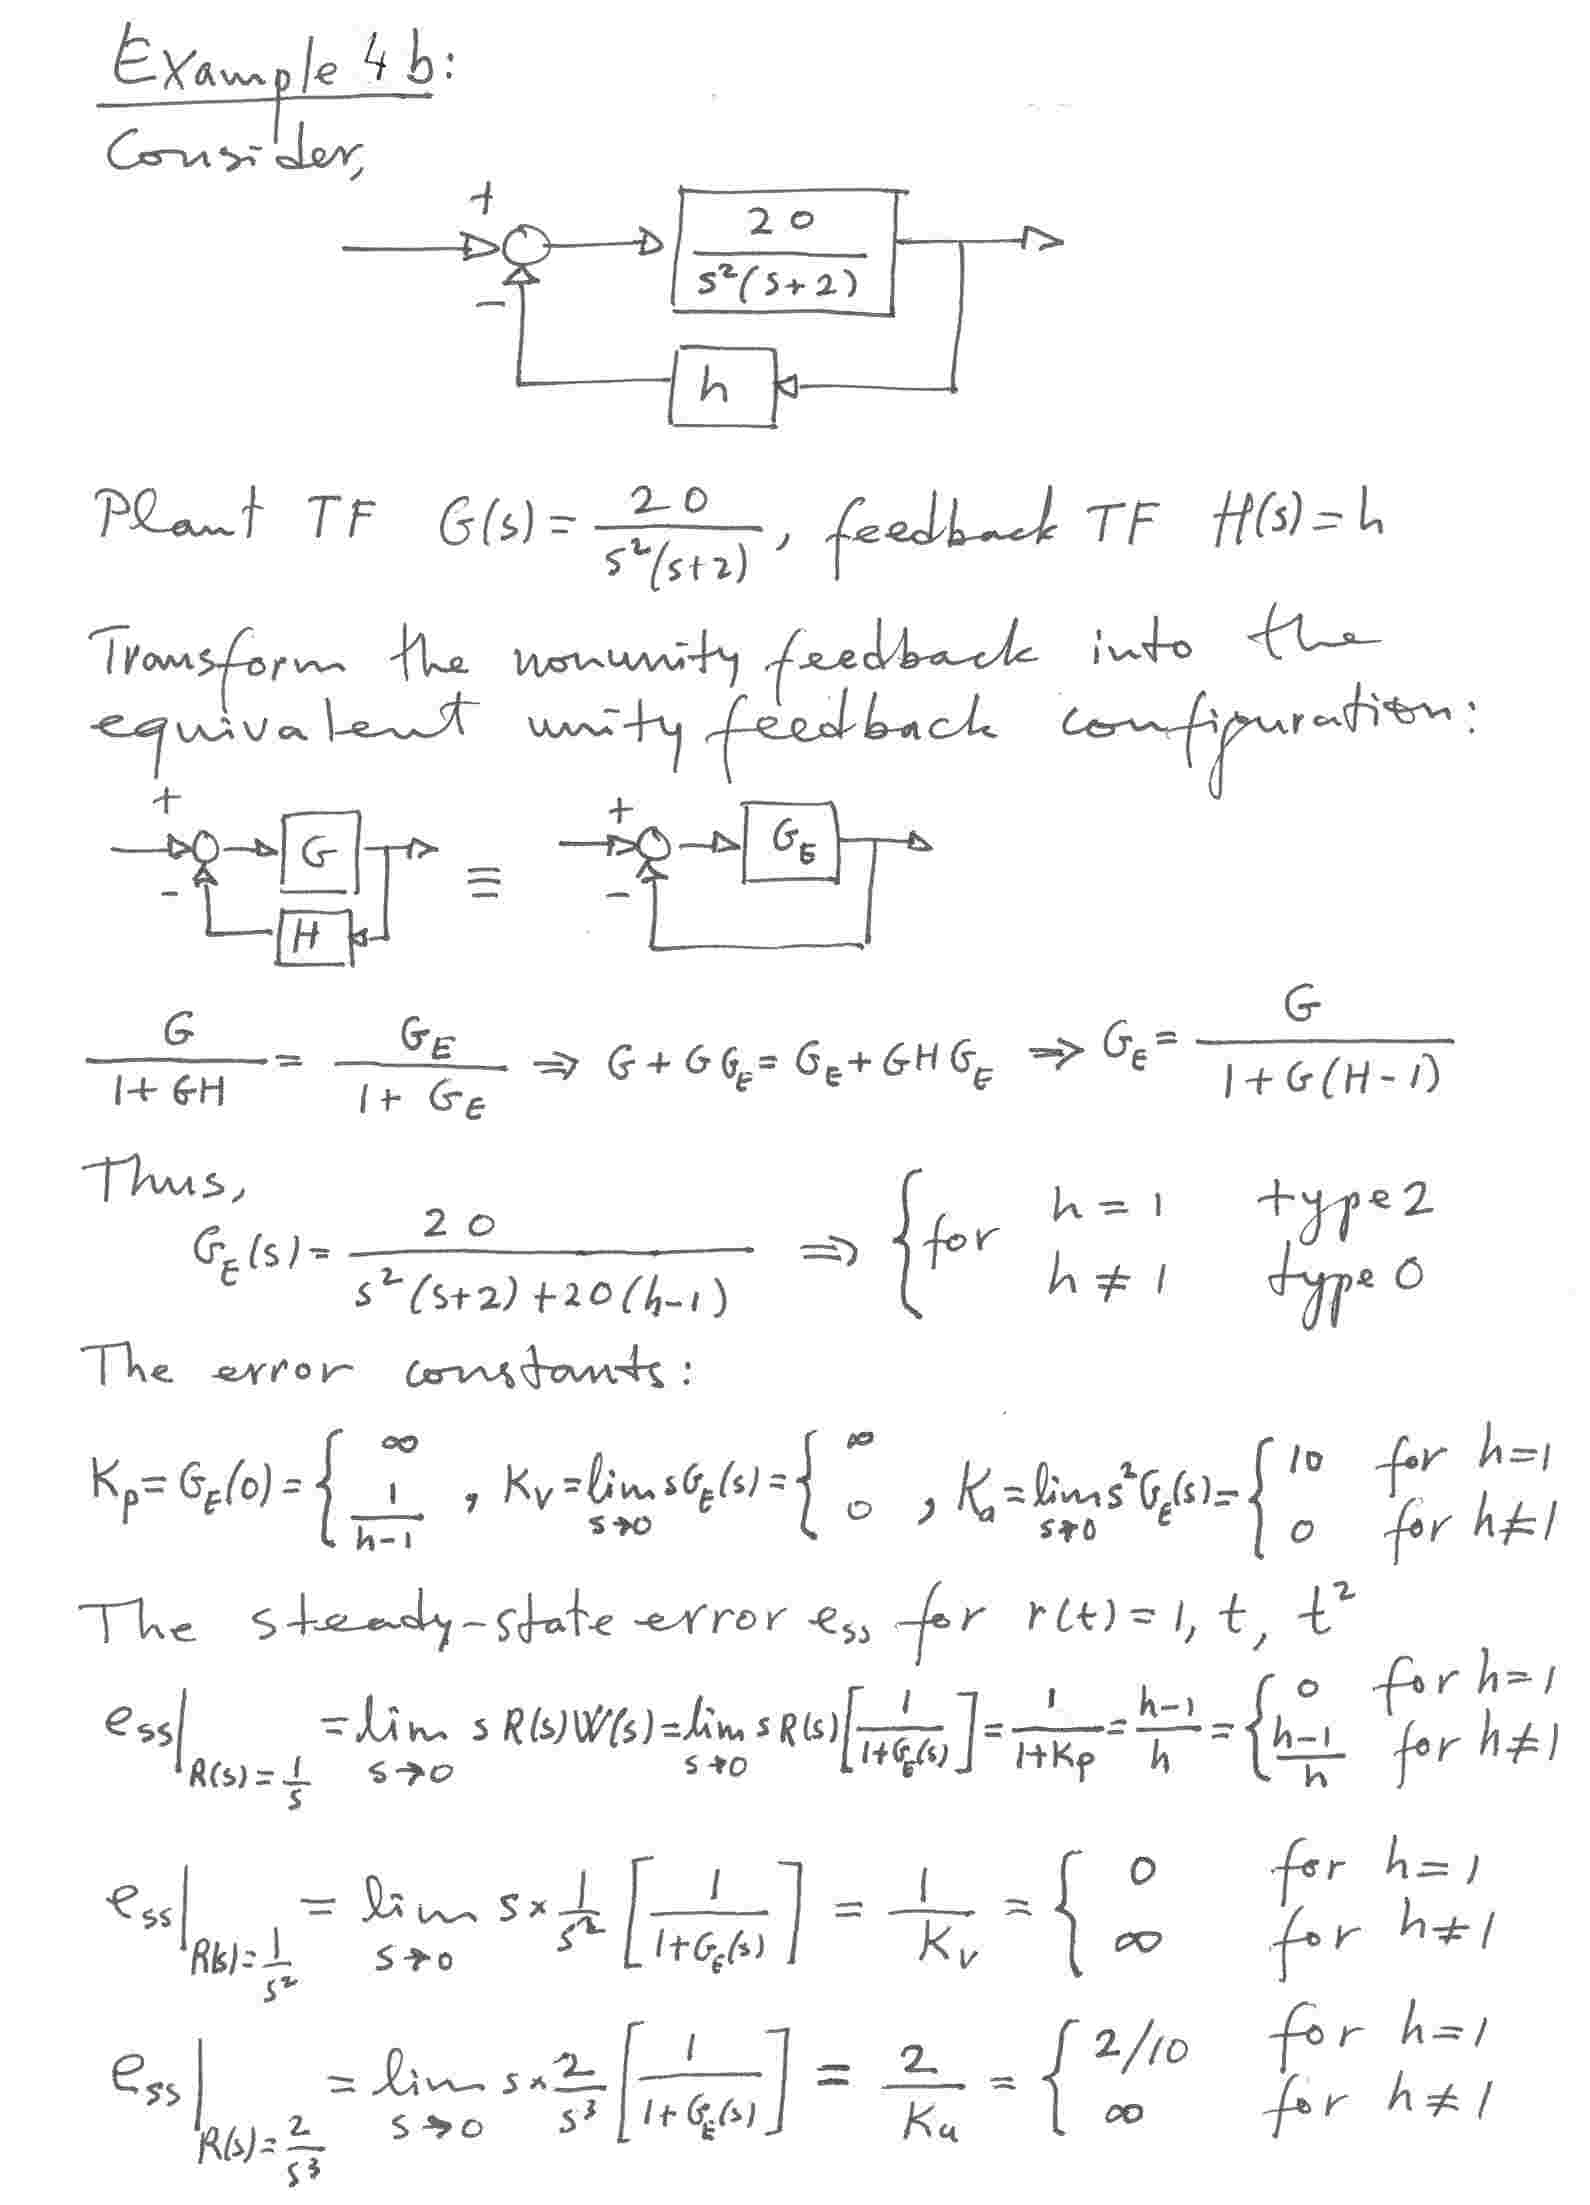 Example 4b:
Consider,
+
20
s²(s+2)
−
h
Plant TF G(s) = 20/(s²(s+2)), feedback TF H(s) = h
Transform the nonunity feedback into the
equivalent unity feedback configuration:
+ G − H ≡ + G_E −
G/(1+GH) = G_E/(1+G_E) ⇒ G + G G_E = G_E + GH G_E ⇒ G_E = G/(1+G(H-1))
Thus,
G_E(s) = 20/(s²(s+2)+20(h-1)) ⇒ { for h = 1 type 2
h ≠ 1 type 0
The error constants:
K_p = G_E(0) = { ∞ ; 1/(h-1) , K_v = lim_{s→0} sG_E(s) = { ∞ ; 0 , K_a = lim_{s→0} s²G_E(s) = { 10 for h=1 ; 0 for h≠1
The steady-state error e_ss for r(t) = 1, t, t²
e_ss|_{R(s)=1/s} = lim_{s→0} s R(s)W(s) = lim_{s→0} s R(s)[1/(1+G_E(s))] = 1/(1+K_p) = (h-1)/h = { 0 for h=1 ; (h-1)/h for h≠1
e_ss|_{R(s)=1/s²} = lim_{s→0} s × 1/s² [1/(1+G_E(s))] = 1/K_v = { 0 for h=1 ; ∞ for h≠1
e_ss|_{R(s)=2/s³} = lim_{s→0} s × 2/s³ [1/(1+G_E(s))] = 2/K_a = { 2/10 for h=1 ; ∞ for h≠1